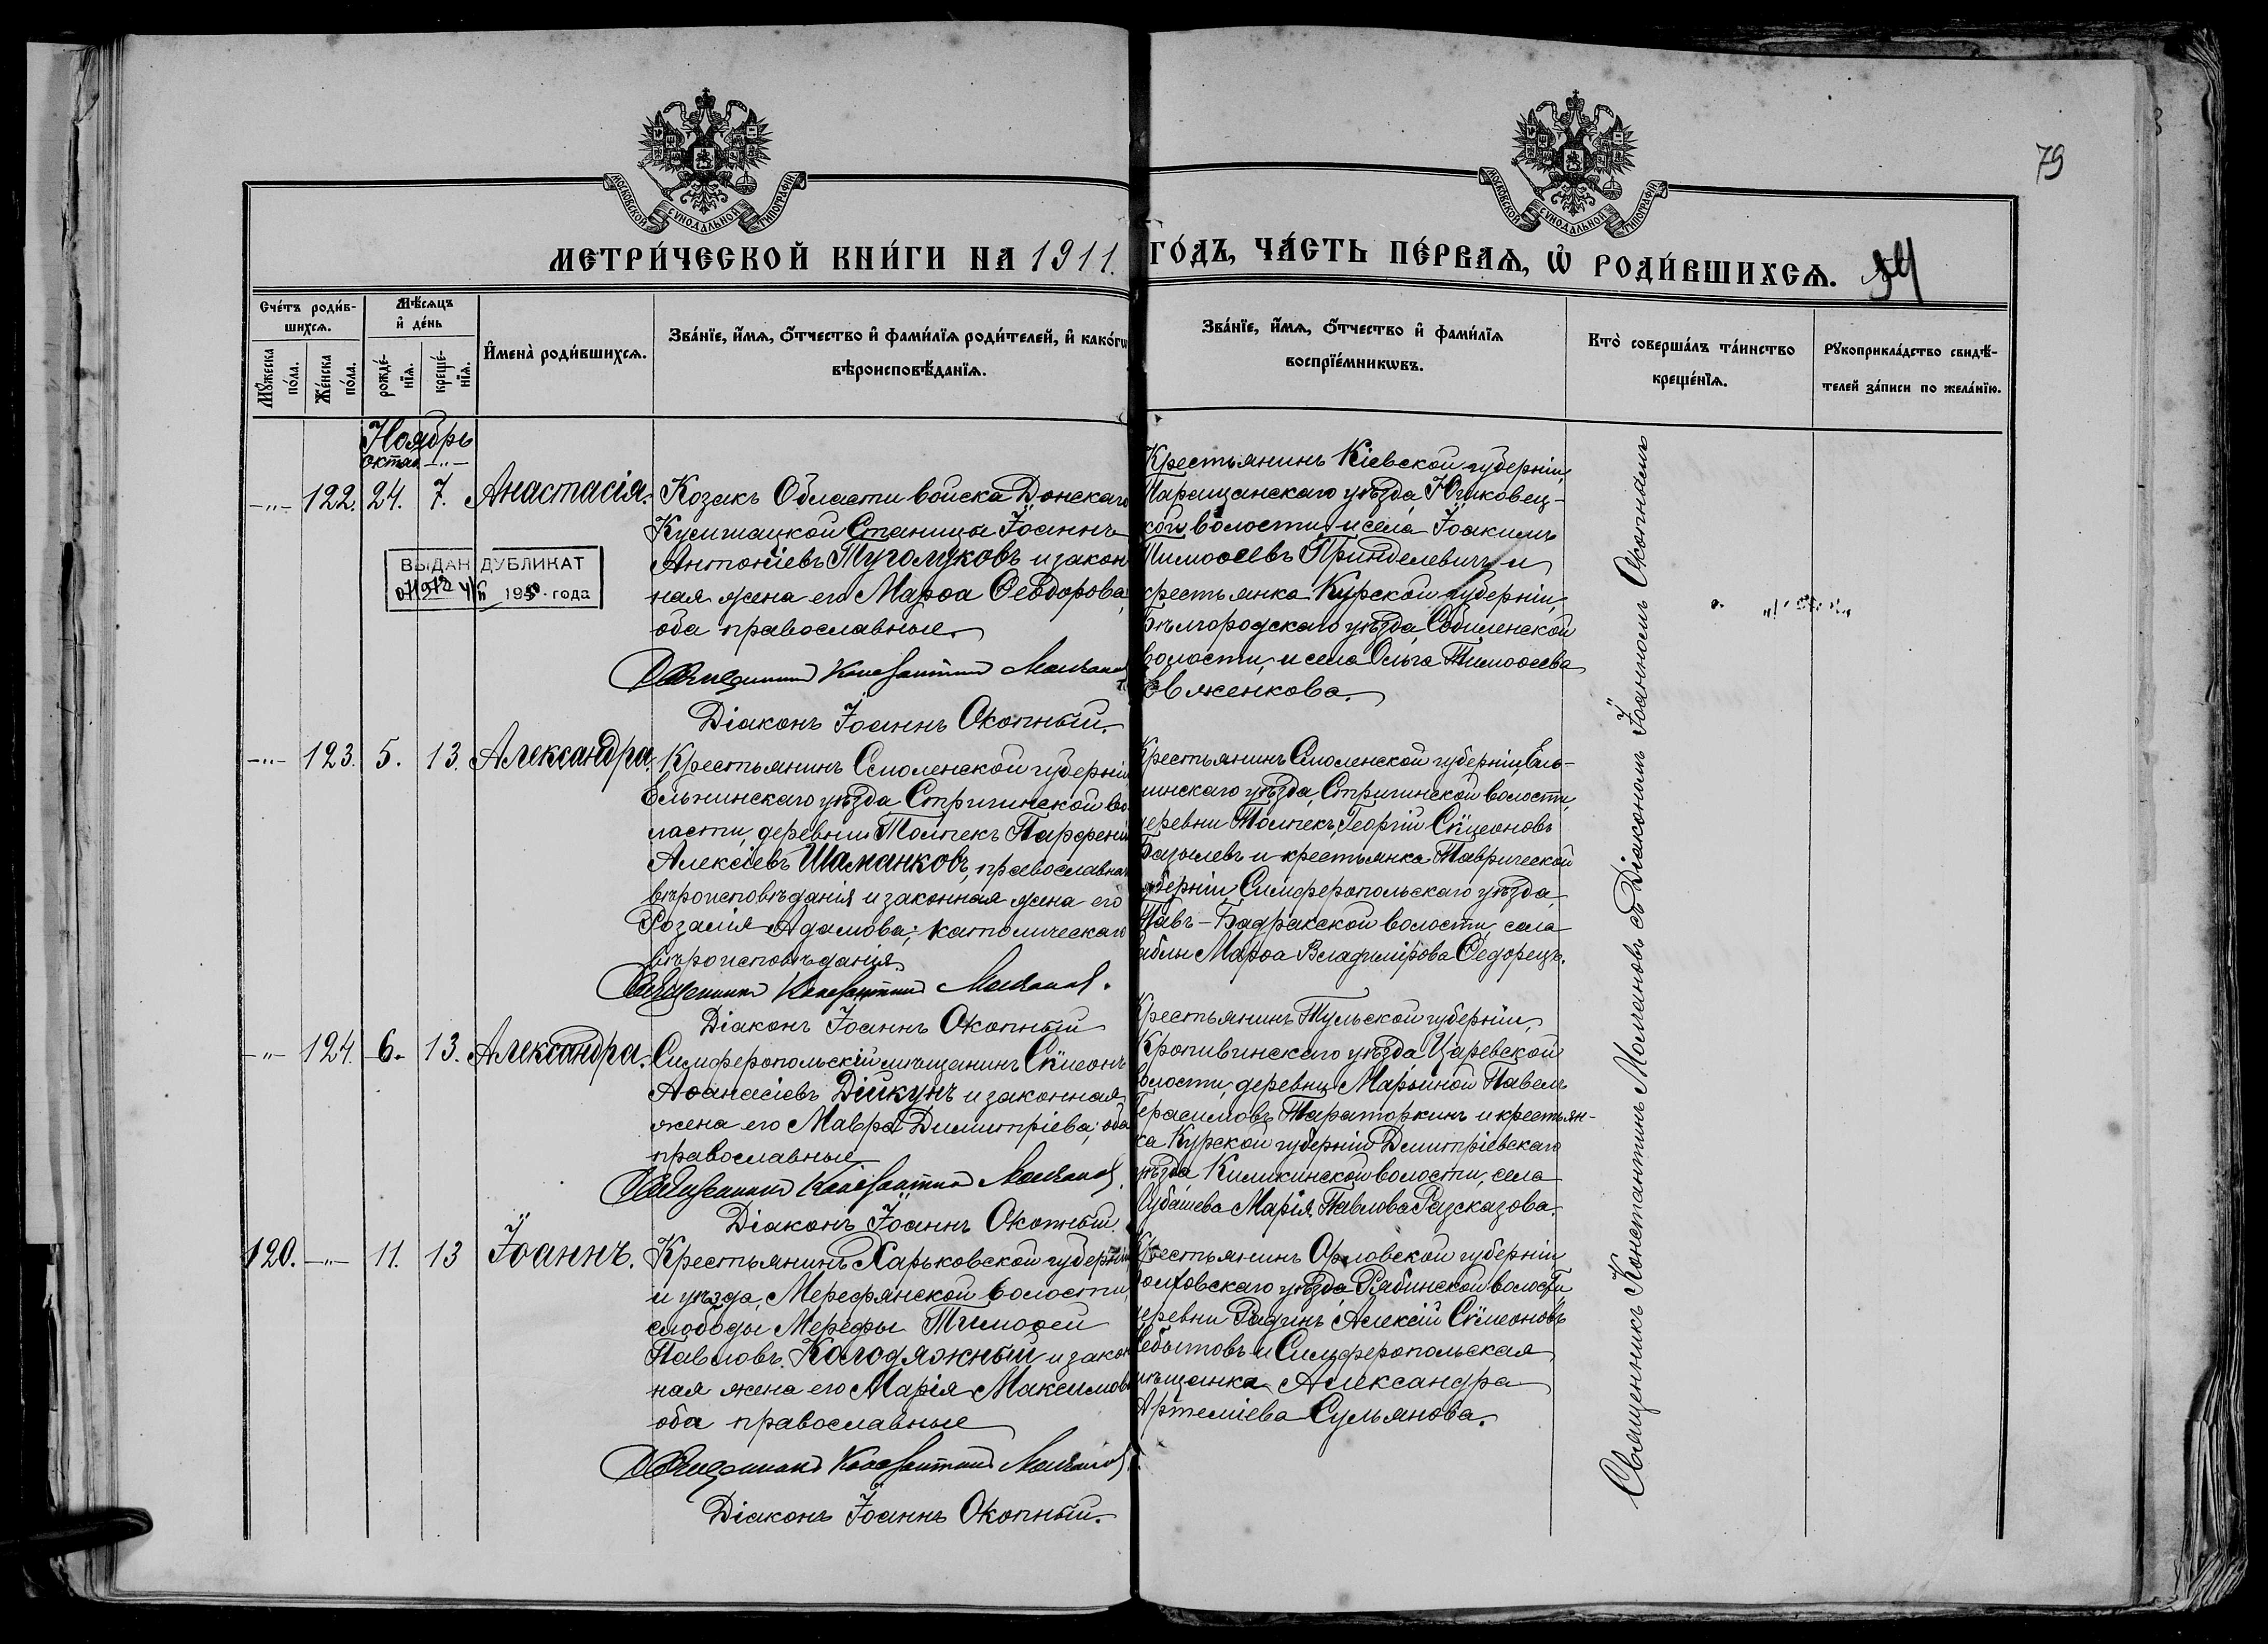 79
МОСКОВСКОЙ СУНОДАЛЬНОЙ ТИПОГРАФІИ
МОСКОВСКОЙ СУНОДАЛЬНОЙ ТИПОГРАФІИ
МЕТРИ́ЧЕСКОЙ КНИ́ГИ НА 1911. ГО́ДЪ, ЧА́СТЬ ПЕ́РВАѦ, Ѡ҆ РОДИ́ВШИХСѦ.
Сче́тъ роди́в-
шихсѧ.
Мꙋ́жеска по́ла.
Же́нска по́ла.
Мѣ́сѧцъ
и҆ де́нь
рожде́-
нїѧ.
креще́-
нїѧ.
И҆мена̀ роди́вшихсѧ.
Зва́нїе, и҆́мѧ, ѻ҆́тчество и҆ фами́лїѧ роди́телей, и҆ како́гѡ
вѣроисповѣ́данїѧ.
Зва́нїе, и҆́мѧ, ѻ҆́тчество и҆ фами́лїѧ
воспрїе́мникѡвъ.
Кто̀ соверша́лъ та́инство
креще́нїѧ.
Рꙋкоприкла́дство свидѣ́-
телей за́писи по жела́нїю.
Ноябрь
октяб. -"-
-"- 122. 24. 7. Анастасія.
Козакъ Области войска Донскаго
Станицы Іоаннъ
Антоніевъ Туголуковъ и закон
ная жена его Марѳа Ѳеодорова,
оба православные.
Священникъ Константинъ
Діаконъ Іоаннъ Окопный.
ВЫДАН ДУБЛИКАТ
195 года
Крестьянинъ Кіевской губерніи,
уѣзда,
кой волости и села Іоакимъ
Тимоѳеевъ Принделевичъ и
крестьянка Курской губерніи,
Бѣлгородскаго уѣзда,
волости, и села Ольга Тимоѳеева
-"- 123. 5. 13. Александра.
Крестьянинъ Смоленской губерніи
Ельнинскаго уѣзда Стригинской во
лости, деревни Парфеній
Алексіевъ Шаманковъ, православнаго
вѣроисповѣданія и законная жена его
Розалія Адамова; католическаго
вѣроисповѣданія
Священникъ Константинъ
Діаконъ Іоаннъ Окопный
Крестьянинъ Смоленской губерніи, Ель-
нинскаго уѣзда, Стригинской волости,
деревни Георгій Сѵмеоновъ
и крестьянка Таврической
губерніи, Симферопольскаго уѣзда,
волости, села
Марѳа Владимірова Ѳедорецъ.
-"- 124. 6. 13. Александра.
Симферопольскій мѣщанинъ Сѵмеонъ
Аѳанасіевъ Дійкунъ и законная
жена его Мавра Димитріева; оба
православные
Священникъ Константинъ
Діаконъ Іоаннъ Окопный
Крестьянинъ Тульской губерніи,
Кропивинскаго уѣзда, Царевской
волости, деревни Марьиной Павелъ
Герасимовъ Тараторкинъ и крестьян-
ка Курской губерніи Димитріевскаго
уѣзда волости, села
Марія Павлова Разсказова.
120. -"- 11. 13 Іоаннъ.
Крестьянинъ Харьковской губерніи
и уѣзда, Мерефянской волости,
слободы Мерефы Тимоѳей
Павловъ Колодяжный и закон
ная жена его Марія Максимова
оба православные
Священникъ Константинъ
Діаконъ Іоаннъ Окопный.
Крестьянинъ Орловской губерніи
уѣзда Рябинской волости
деревни Алексій Сѵмеоновъ
и Симферопольская
мѣщанка Александра
Артеміева Сульянова.
Священникъ Константинъ съ Діакономъ Іоанномъ Окопнымъ